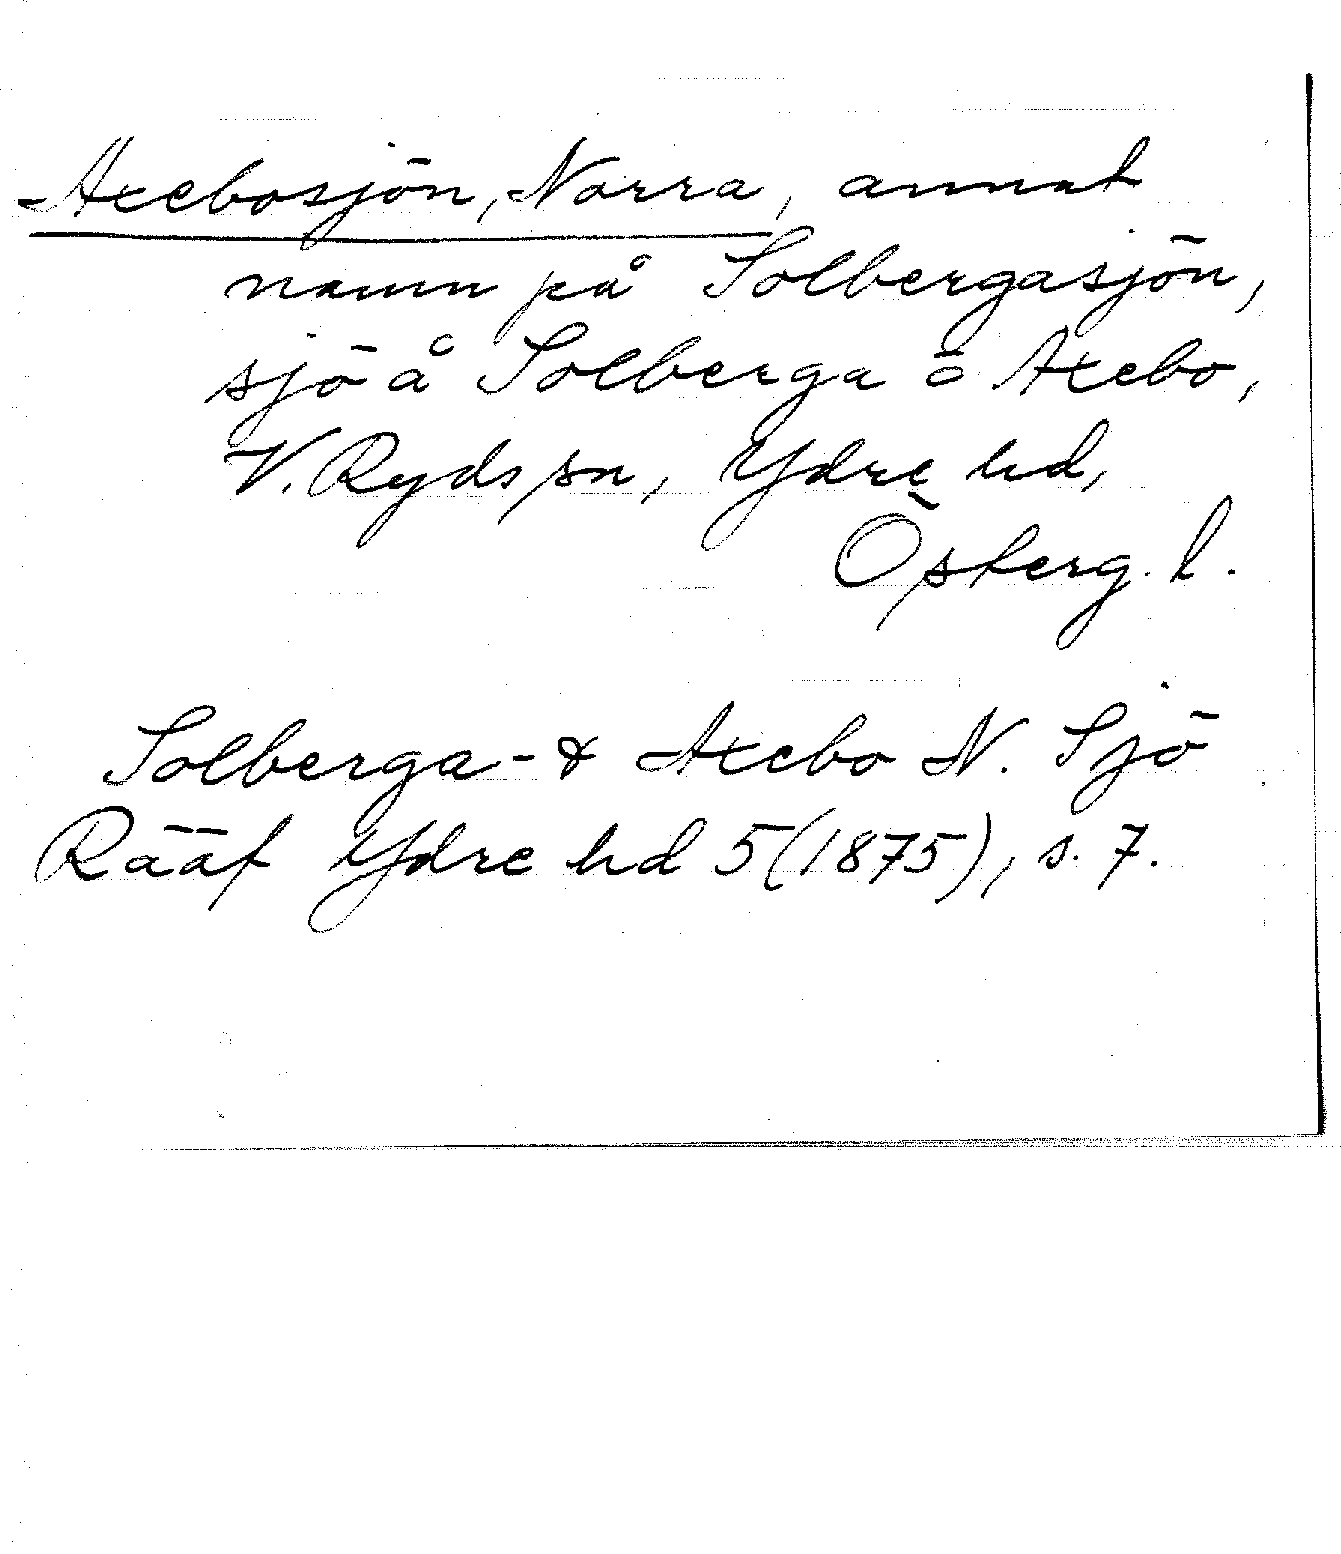 Axebosjön, Norra, annat
namn på Solbergasjön,
sjö å Solberga o Axebo,
V. Ryds sn, Ydre hd,
Österg. l.
Solberga- & Axebo N. Sjö
Rääf Ydre hd 5 (1875), s. 7.